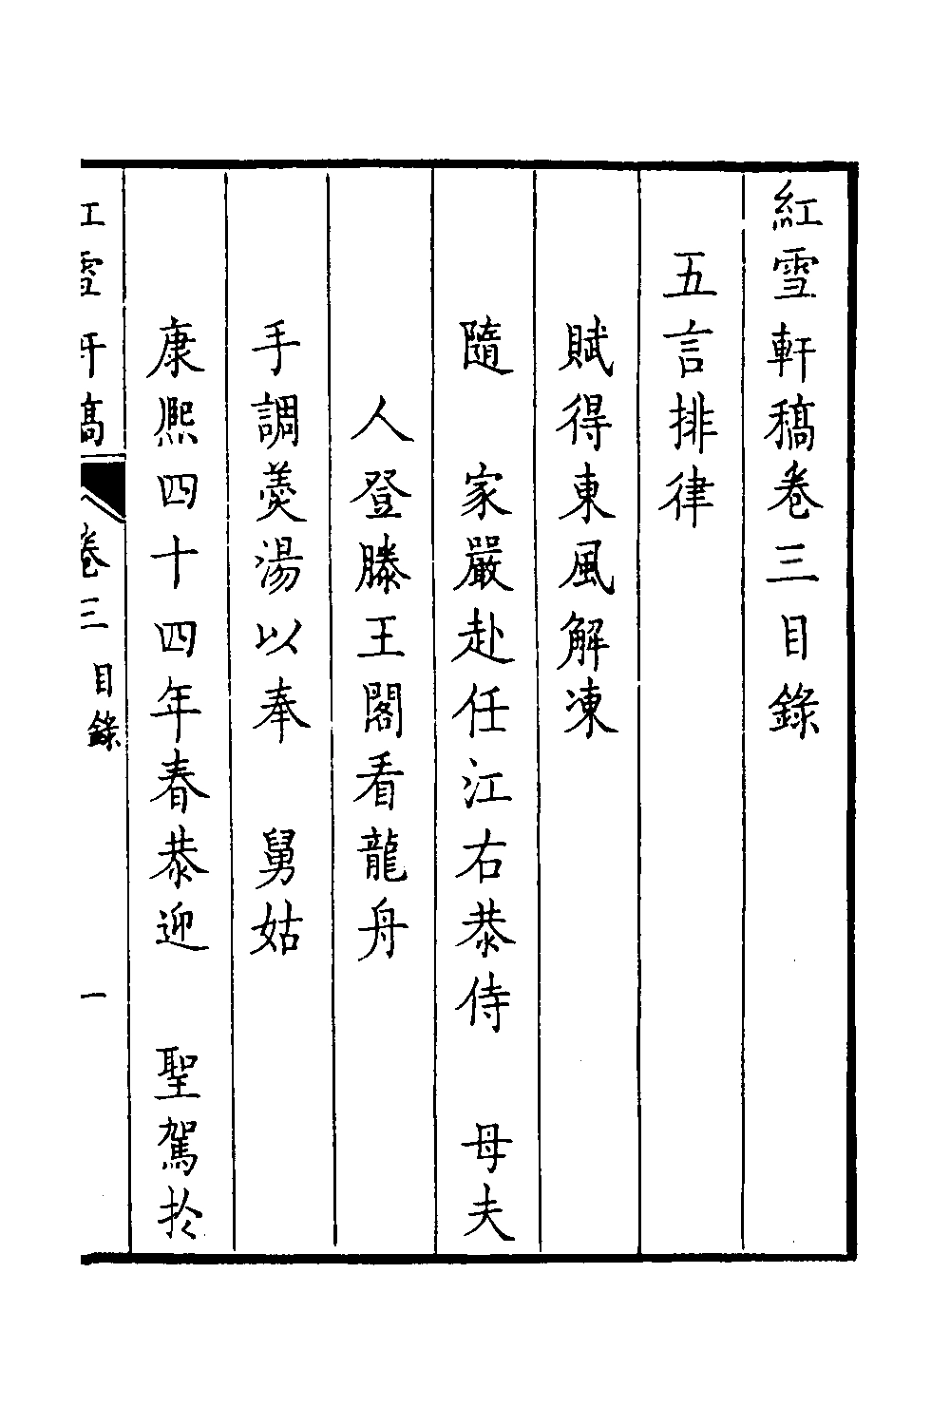 紅雪軒稿卷三目錄
五言排律
賦得東風解凍
隨　家嚴赴任江右恭侍　母夫
人登滕王閣看龍舟
手調羹湯以奉　舅姑
康熙四十四年春恭迎　聖駕於
紅雪軒稿　卷三　目錄　一